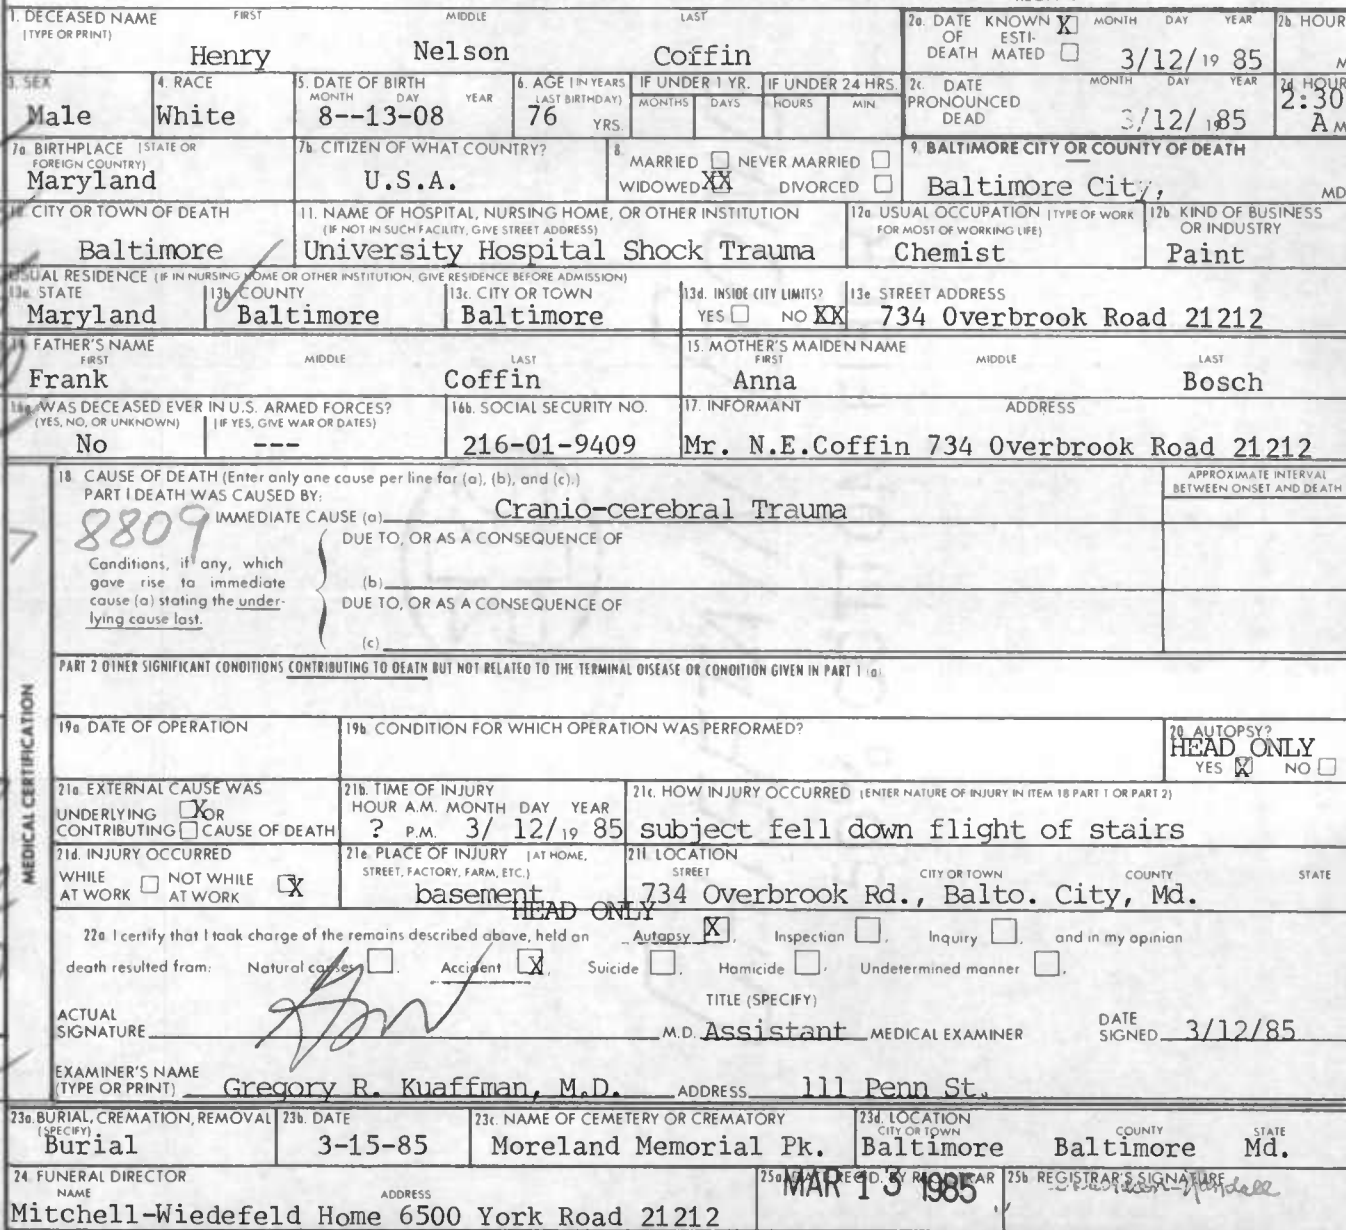 1. DECEASED NAME (TYPE OR PRINT) FIRST MIDDLE LAST
Henry Nelson Coffin
2a. DATE OF DEATH KNOWN X ESTI-MATED MONTH DAY YEAR
3/12/19 85
2b. HOUR
M
3. SEX
Male
4. RACE
White
5. DATE OF BIRTH MONTH DAY YEAR
8--13-08
6. AGE (IN YEARS LAST BIRTHDAY)
76 YRS.
IF UNDER 1 YR. MONTHS DAYS
IF UNDER 24 HRS. HOURS MIN.
2c. DATE PRONOUNCED DEAD MONTH DAY YEAR
3/12/ 1985
2d. HOUR
2:30
A M
7a. BIRTHPLACE (STATE OR FOREIGN COUNTRY)
Maryland
7b. CITIZEN OF WHAT COUNTRY?
U.S.A.
8.
MARRIED NEVER MARRIED
WIDOWED XX DIVORCED
9. BALTIMORE CITY OR COUNTY OF DEATH
Baltimore City, MD
10. CITY OR TOWN OF DEATH
Baltimore
11. NAME OF HOSPITAL, NURSING HOME, OR OTHER INSTITUTION
(IF NOT IN SUCH FACILITY, GIVE STREET ADDRESS)
University Hospital Shock Trauma
12a. USUAL OCCUPATION (TYPE OF WORK FOR MOST OF WORKING LIFE)
Chemist
12b. KIND OF BUSINESS OR INDUSTRY
Paint
USUAL RESIDENCE (IF IN NURSING HOME OR OTHER INSTITUTION, GIVE RESIDENCE BEFORE ADMISSION)
13a. STATE
Maryland
13b. COUNTY
Baltimore
13c. CITY OR TOWN
Baltimore
13d. INSIDE CITY LIMITS?
YES NO XX
13e. STREET ADDRESS
734 Overbrook Road 21212
14. FATHER'S NAME FIRST MIDDLE LAST
Frank Coffin
15. MOTHER'S MAIDEN NAME FIRST MIDDLE LAST
Anna Bosch
16a. WAS DECEASED EVER IN U.S. ARMED FORCES?
(YES, NO, OR UNKNOWN) (IF YES, GIVE WAR OR DATES)
No ---
16b. SOCIAL SECURITY NO.
216-01-9409
17. INFORMANT ADDRESS
Mr. N.E.Coffin 734 Overbrook Road 21212
MEDICAL CERTIFICATION
18. CAUSE OF DEATH (Enter only one cause per line for (a), (b), and (c).)
PART I DEATH WAS CAUSED BY:
APPROXIMATE INTERVAL BETWEEN ONSET AND DEATH
8809
IMMEDIATE CAUSE (a) Cranio-cerebral Trauma
DUE TO, OR AS A CONSEQUENCE OF
Conditions, if any, which
gave rise to immediate
cause (a) stating the under-
lying cause last.
(b)
DUE TO, OR AS A CONSEQUENCE OF
(c)
PART 2 OTHER SIGNIFICANT CONDITIONS CONTRIBUTING TO DEATH BUT NOT RELATED TO THE TERMINAL DISEASE OR CONDITION GIVEN IN PART 1 (a)
19a. DATE OF OPERATION
19b. CONDITION FOR WHICH OPERATION WAS PERFORMED?
20. AUTOPSY?
HEAD ONLY
YES X NO
21a. EXTERNAL CAUSE WAS
UNDERLYING X OR
CONTRIBUTING CAUSE OF DEATH
21b. TIME OF INJURY
HOUR A.M. MONTH DAY YEAR
? P.M. 3/ 12/19 85
21c. HOW INJURY OCCURRED (ENTER NATURE OF INJURY IN ITEM 18 PART 1 OR PART 2)
subject fell down flight of stairs
21d. INJURY OCCURRED
WHILE AT WORK NOT WHILE AT WORK X
21e. PLACE OF INJURY (AT HOME, STREET, FACTORY, FARM, ETC.)
basement
21f. LOCATION STREET CITY OR TOWN COUNTY STATE
734 Overbrook Rd., Balto. City, Md.
HEAD ONLY
22a. I certify that I took charge of the remains described above, held an Autopsy X, Inspection , Inquiry , and in my opinion
death resulted from: Natural causes , Accident X, Suicide , Homicide , Undetermined manner ,
TITLE (SPECIFY)
ACTUAL SIGNATURE M.D. Assistant MEDICAL EXAMINER DATE SIGNED 3/12/85
EXAMINER'S NAME (TYPE OR PRINT) Gregory R. Kuaffman, M.D. ADDRESS 111 Penn St.
23a. BURIAL, CREMATION, REMOVAL (SPECIFY)
Burial
23b. DATE
3-15-85
23c. NAME OF CEMETERY OR CREMATORY
Moreland Memorial Pk.
23d. LOCATION CITY OR TOWN COUNTY STATE
Baltimore Baltimore Md.
24. FUNERAL DIRECTOR NAME ADDRESS
Mitchell-Wiedefeld Home 6500 York Road 21212
25a. DATE REC'D. BY REGISTRAR
MAR 13 1985
25b. REGISTRAR'S SIGNATURE